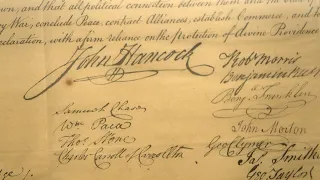 and that all political connection between them and the
War, conclude Peace, contract Alliances, establish Commerce, and to
claration, with a firm reliance on the protection of divine Providence
John Hancock
Robt Morris
Benjamin Rush
Benj. Franklin
Samuel Chase
Wm Paca
Thos Stone
Charles Carroll of Carrollton
John Morton
Geo Clymer
Jas Smith
Geo. Taylor